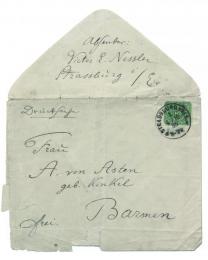 Absender:
Victor E. Nessler
Strassburg i/E.
Drucksache
Frau
A. von Asten
geb. Kinkel
Barmen
frei.